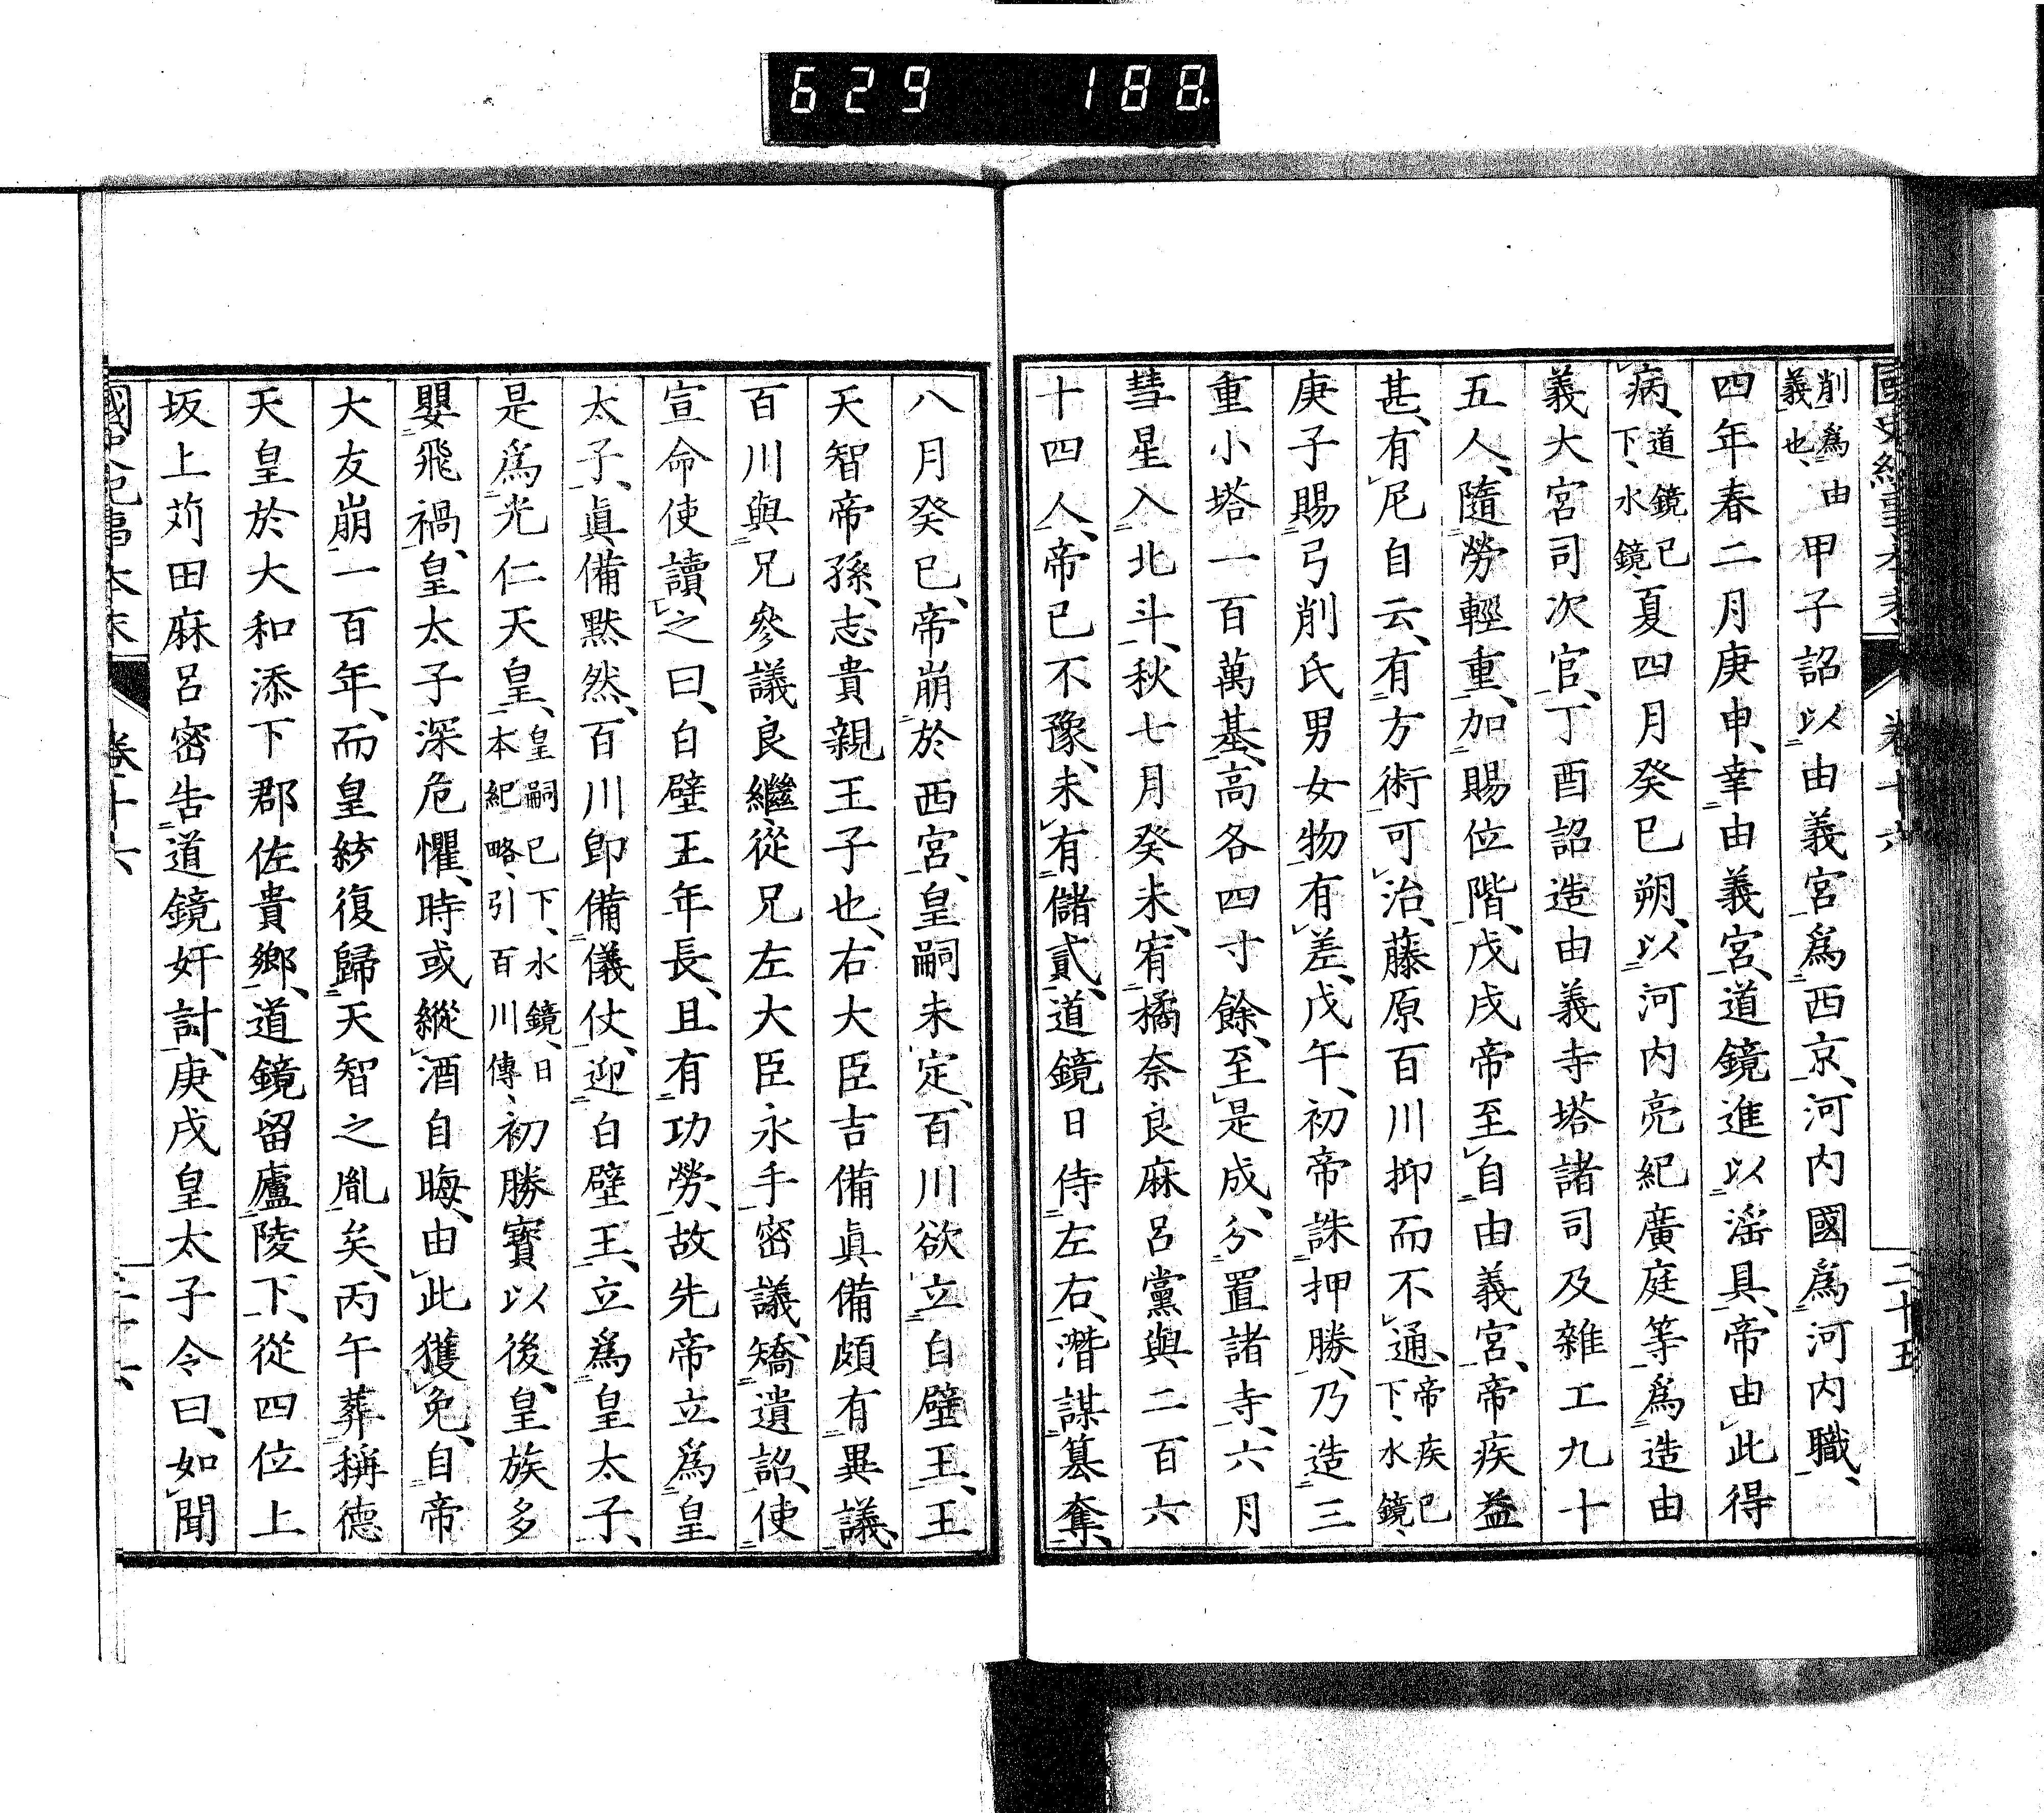 629 188.
國史紀事本末 卷十六 二十五
削爲由義也、甲子詔以由義宮爲西京、河内國爲河内職、
四年春二月庚申、幸由義宮、道鏡進以淫具、帝由此得
病、道鏡已下、水鏡、夏四月癸巳朔、以河内亮紀廣庭等爲造由
義大宮司次官、丁酉詔造由義寺塔諸司及雜工九十
五人、隨勞輕重、加賜位階、戊戌帝至自由義宮、帝疾益
甚、有尼自云、有方術可治、藤原百川抑而不通、帝疾已下、水鏡、
庚子賜弓削氏男女物有差、戊午、初帝誅押勝、乃造三
重小塔一百萬基、高各四寸餘、至是成、分置諸寺、六月
彗星入北斗、秋七月癸未、宥橘奈良麻呂黨與二百六
十四人、帝已不豫、未有儲貳、道鏡日侍左右、潛謀簒奪、
八月癸巳、帝崩於西宮、皇嗣未定、百川欲立白壁王、王
天智帝孫、志貴親王子也、右大臣吉備眞備頗有異議、
百川與兄參議良繼、從兄左大臣永手密議、矯遺詔、使
宣命使讀之曰、白壁王年長、且有功勞、故先帝立爲皇
太子、眞備默然、百川卽備儀仗、迎白壁王、立爲皇太子、
是爲光仁天皇、皇嗣已下、水鏡、日本紀略、引百川傳、初勝寶以後、皇族多
嬰飛禍、皇太子深危懼、時或縱酒自晦、由此獲免、自帝
大友崩一百年、而皇統復歸天智之胤矣、丙午葬稱德
天皇於大和添下郡佐貴鄉、道鏡留廬陵下、從四位上
坂上苅田麻呂密告道鏡奸計、庚戌皇太子令曰、如聞
國史紀事本末 卷十六